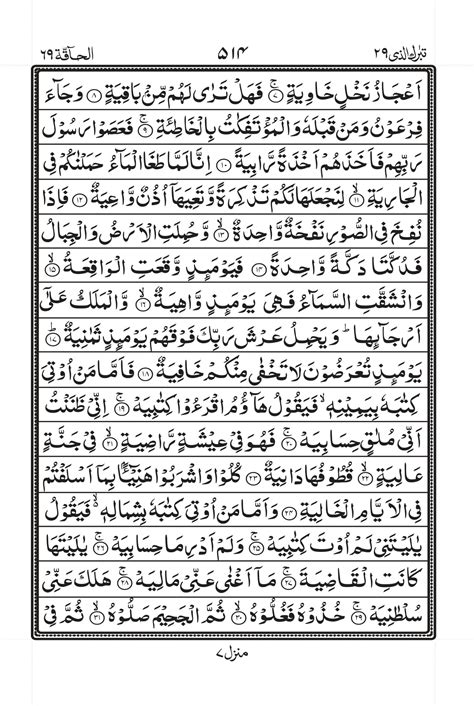 تبٰرك الذی ٢٩ ۵۱۴ الحاقة ٦٩
اَعْجَازُ نَخْلٍ خَاوِيَةٍ ۚ‏﴿۷﴾ فَهَلْ تَرٰى لَهُمْ مِّنْۢ بَاقِيَةٍ ﴿۸﴾ وَجَآءَ
فِرْعَوْنُ وَمَنْ قَبْلَهٗ وَالْمُؤْتَفِكٰتُ بِالْخَاطِئَةِ ۚ‏﴿۹﴾ فَعَصَوْا رَسُوْلَ
رَبِّهِمْ فَاَخَذَهُمْ اَخْذَةً رَّابِيَةً ﴿۱۰﴾ اِنَّا لَمَّا طَغَا الْمَآءُ حَمَلْنٰكُمْ فِى
الْجَارِيَةِ ۙ‏﴿۱۱﴾ لِنَجْعَلَهَا لَكُمْ تَذْكِرَةً وَّتَعِيَهَاۤ اُذُنٌ وَّاعِيَةٌ ﴿۱۲﴾ فَاِذَا
نُفِخَ فِى الصُّوْرِ نَفْخَةٌ وَّاحِدَةٌ ۙ‏﴿۱۳﴾ وَّحُمِلَتِ الْاَرْضُ وَالْجِبَالُ
فَدُكَّتَا دَكَّةً وَّاحِدَةً ۙ‏﴿۱۴﴾ فَيَوْمَئِذٍ وَّقَعَتِ الْوَاقِعَةُ ۙ‏﴿۱۵﴾
وَانْشَقَّتِ السَّمَآءُ فَهِىَ يَوْمَئِذٍ وَّاهِيَةٌ ۙ‏﴿۱۶﴾ وَّالْمَلَكُ عَلٰٓى
اَرْجَآئِهَا ؕ وَيَحْمِلُ عَرْشَ رَبِّكَ فَوْقَهُمْ يَوْمَئِذٍ ثَمٰنِيَةٌ ؕ‏﴿۱۷﴾
يَوْمَئِذٍ تُعْرَضُوْنَ لَا تَخْفٰى مِنْكُمْ خَافِيَةٌ ﴿۱۸﴾ فَاَمَّا مَنْ اُوْتِىَ
كِتٰبَهٗ بِيَمِيْنِهٖ ۙ فَيَقُوْلُ هَآؤُمُ اقْرَءُوْا كِتٰبِيَهْ ۚ‏﴿۱۹﴾ اِنِّىْ ظَنَنْتُ
اَنِّىْ مُلٰقٍ حِسَابِيَهْ ۚ‏﴿۲۰﴾ فَهُوَ فِىْ عِيْشَةٍ رَّاضِيَةٍ ۙ‏﴿۲۱﴾ فِىْ جَنَّةٍ
عَالِيَةٍ ۙ‏﴿۲۲﴾ قُطُوْفُهَا دَانِيَةٌ ﴿۲۳﴾ كُلُوْا وَاشْرَبُوْا هَنِيْٓـئًا ۢ بِمَاۤ اَسْلَفْتُمْ
فِى الْاَيَّامِ الْخَالِيَةِ ﴿۲۴﴾ وَاَمَّا مَنْ اُوْتِىَ كِتٰبَهٗ بِشِمَالِهٖ ۙ فَيَقُوْلُ
يٰلَيْتَنِىْ لَمْ اُوْتَ كِتٰبِيَهْ ۚ‏﴿۲۵﴾ وَلَمْ اَدْرِ مَا حِسَابِيَهْ ۚ‏﴿۲۶﴾ يٰلَيْتَهَا
كَانَتِ الْقَاضِيَةَ ۚ‏﴿۲۷﴾ مَاۤ اَغْنٰى عَنِّىْ مَالِيَهْ ۚ‏﴿۲۸﴾ هَلَكَ عَنِّىْ
سُلْطٰنِيَهْ ۚ‏﴿۲۹﴾ خُذُوْهُ فَغُلُّوْهُ ۙ‏﴿۳۰﴾ ثُمَّ الْجَحِيْمَ صَلُّوْهُ ۙ‏﴿۳۱﴾ ثُمَّ فِىْ
منزل ۷